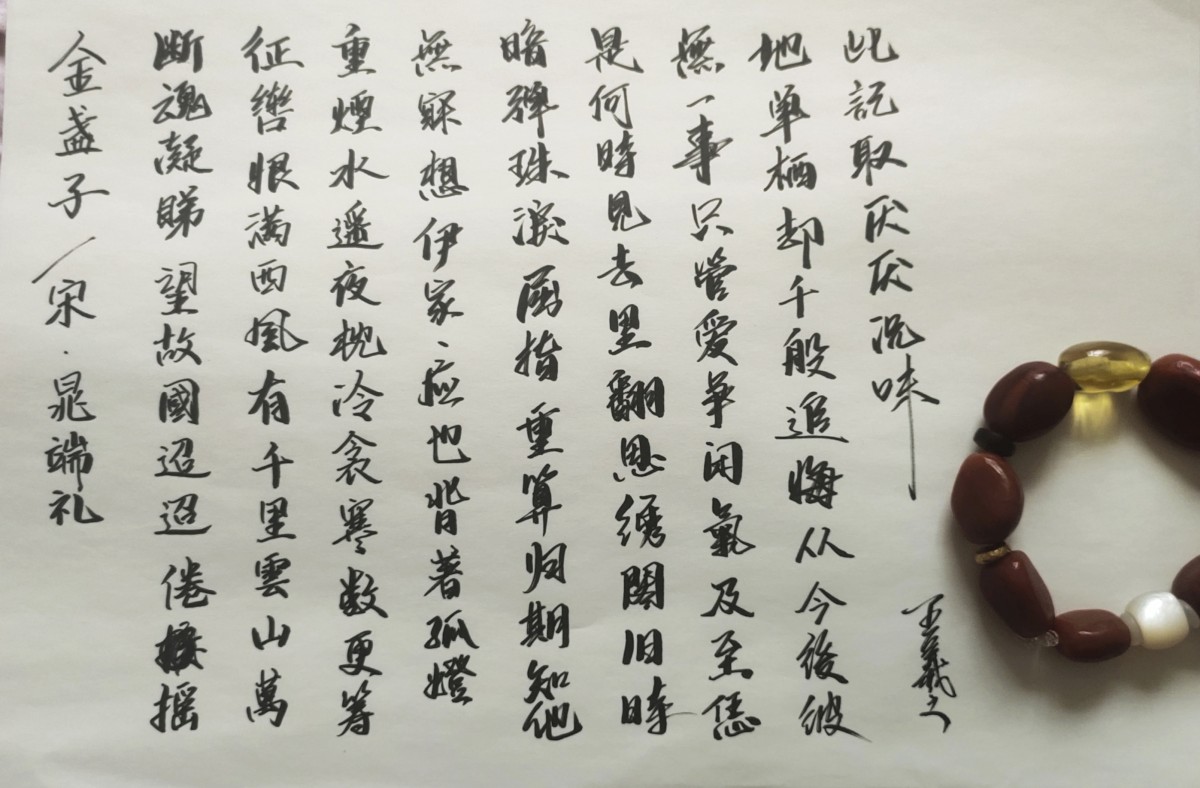 金盏子/宋·晁端礼
断魂凝睇望故國迢迢倦摇
征辔恨满西風有千里雲山萬
重煙水遥夜枕冷衾寒数更筹
無寐想伊家、应也背著孤燈
暗弹珠淚屈指重算归期知他
是何時見去里翻思绣閣旧時
無一事只管愛争闲氣及至恁
地单栖却千般追悔从今後彼
此記取厌厌况味
王羲之